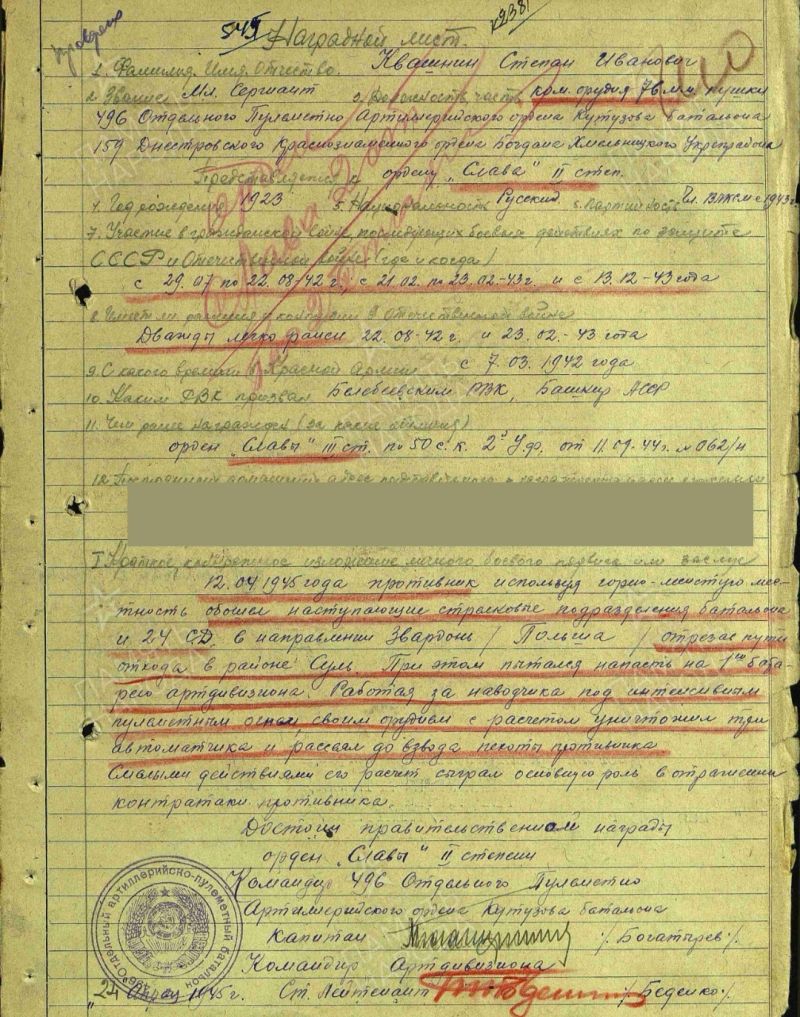 проведено
545
Наградной лист.
1. Фамилия. Имя. Отчество. Квашнин Степан Иванович
2. Звание Мл. Сержант 3. Должность, часть ком. орудия 76 м.м. пушки
496 Отдельного Пулеметно Артиллерийского ордена Кутузова батальона
159 Днестровского Краснознаменного ордена Богдана Хмельницкого Укрепрайона
Представляется к ордену „Слава" II степ.
4. Год рождения 1923 5. Национальность Русский 6. Партийность чл. ВЛКСМ с 1943 г.
7. Участие в гражданской войне, последующих боевых действиях по защите
СССР и Отечественной войне (где и когда)
с 29.07 по 22.08-42 г., с 21.02 по 23.02-43 г. и с 13.12-43 года
8. Имеет ли ранения и контузии в Отечественной войне
Дважды легко ранен 22.08-42 г. и 23.02.-43 года
9. С какого времени в Красной Армии с 7.03.1942 года
10. Каким РВК призван РВК, Башкир АССР
11. Чем ранее награжден (за какие отличия)
орден „Славы" III ст. по 50 с.к. 2го У.Ф. от 11.09.44 г. № 062/н
I Краткое, конкретное изложение личного боевого подвига или заслуг
12.04 1945 года противник используя горно-лесистую ме-
тность обошел наступающие стрелковые подразделения батальона
и 24 СД. в направлении Звардонь / Польша / отрезав пути
отхода в районе Суль. При этом пытался напасть на 1ую бата-
рею артдивизиона. Работая за наводчика под интенсивным
пулеметным огнем своим орудием с расчетом уничтожил три
автоматчика и рассеял до взвода пехоты противника
Смелыми действиями его расчет сыграл основную роль в отражении
контратаки противника.
Достоин правительственной награды
орден „Славы" II степени
Командир 496 Отдельного Пулеметно
Артиллерийского ордена Кутузова батальона
Капитан /Богатырев/.
Командир Артдивизиона
"24 Апрел 1945 г. Ст. Лейтенант /Беденко/.
496 Отдельный артиллерийско-пулеметный батальон